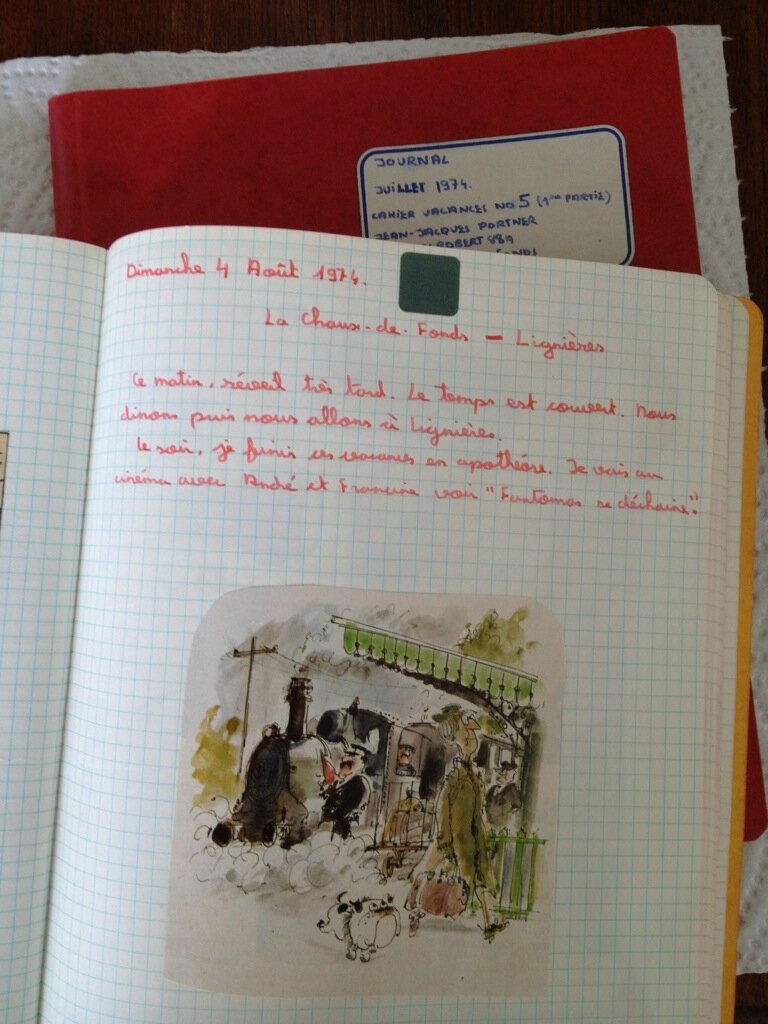 JOURNAL
JUILLET 1974.
CAHIER VACANCES NO 5 (1ère PARTIE)
JEAN-JACQUES PORTNER
ROBERT 88A
FONDS
Dimanche 4 Août 1974.
La Chaux-de-Fonds — Lignières
Ce matin, réveil très tard. Le temps est couvert. Nous
dinons puis nous allons à Lignières.
Le soir, je finis ces vacances en apothéose. Je vais au
cinéma avec André et Francine voir "Fantomas se déchaine".